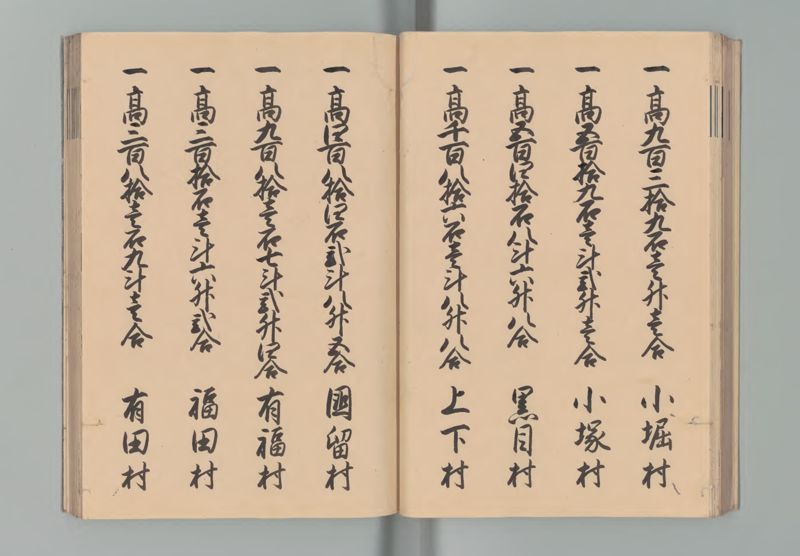 一高九百三拾九石壱升壱合　小堀村
一高五百拾九石壱斗弐升壱合　小塚村
一高五百四拾石八斗六升八合　黒目村
一高千百八拾六石壱斗八升八合　上下村
一高四百八拾四石弐斗八升五合　國留村
一高九百八拾壱石七斗弐升四合　有福村
一高三百拾石壱斗六升弐合　福田村
一高三百八拾壱石九斗壱合　有田村